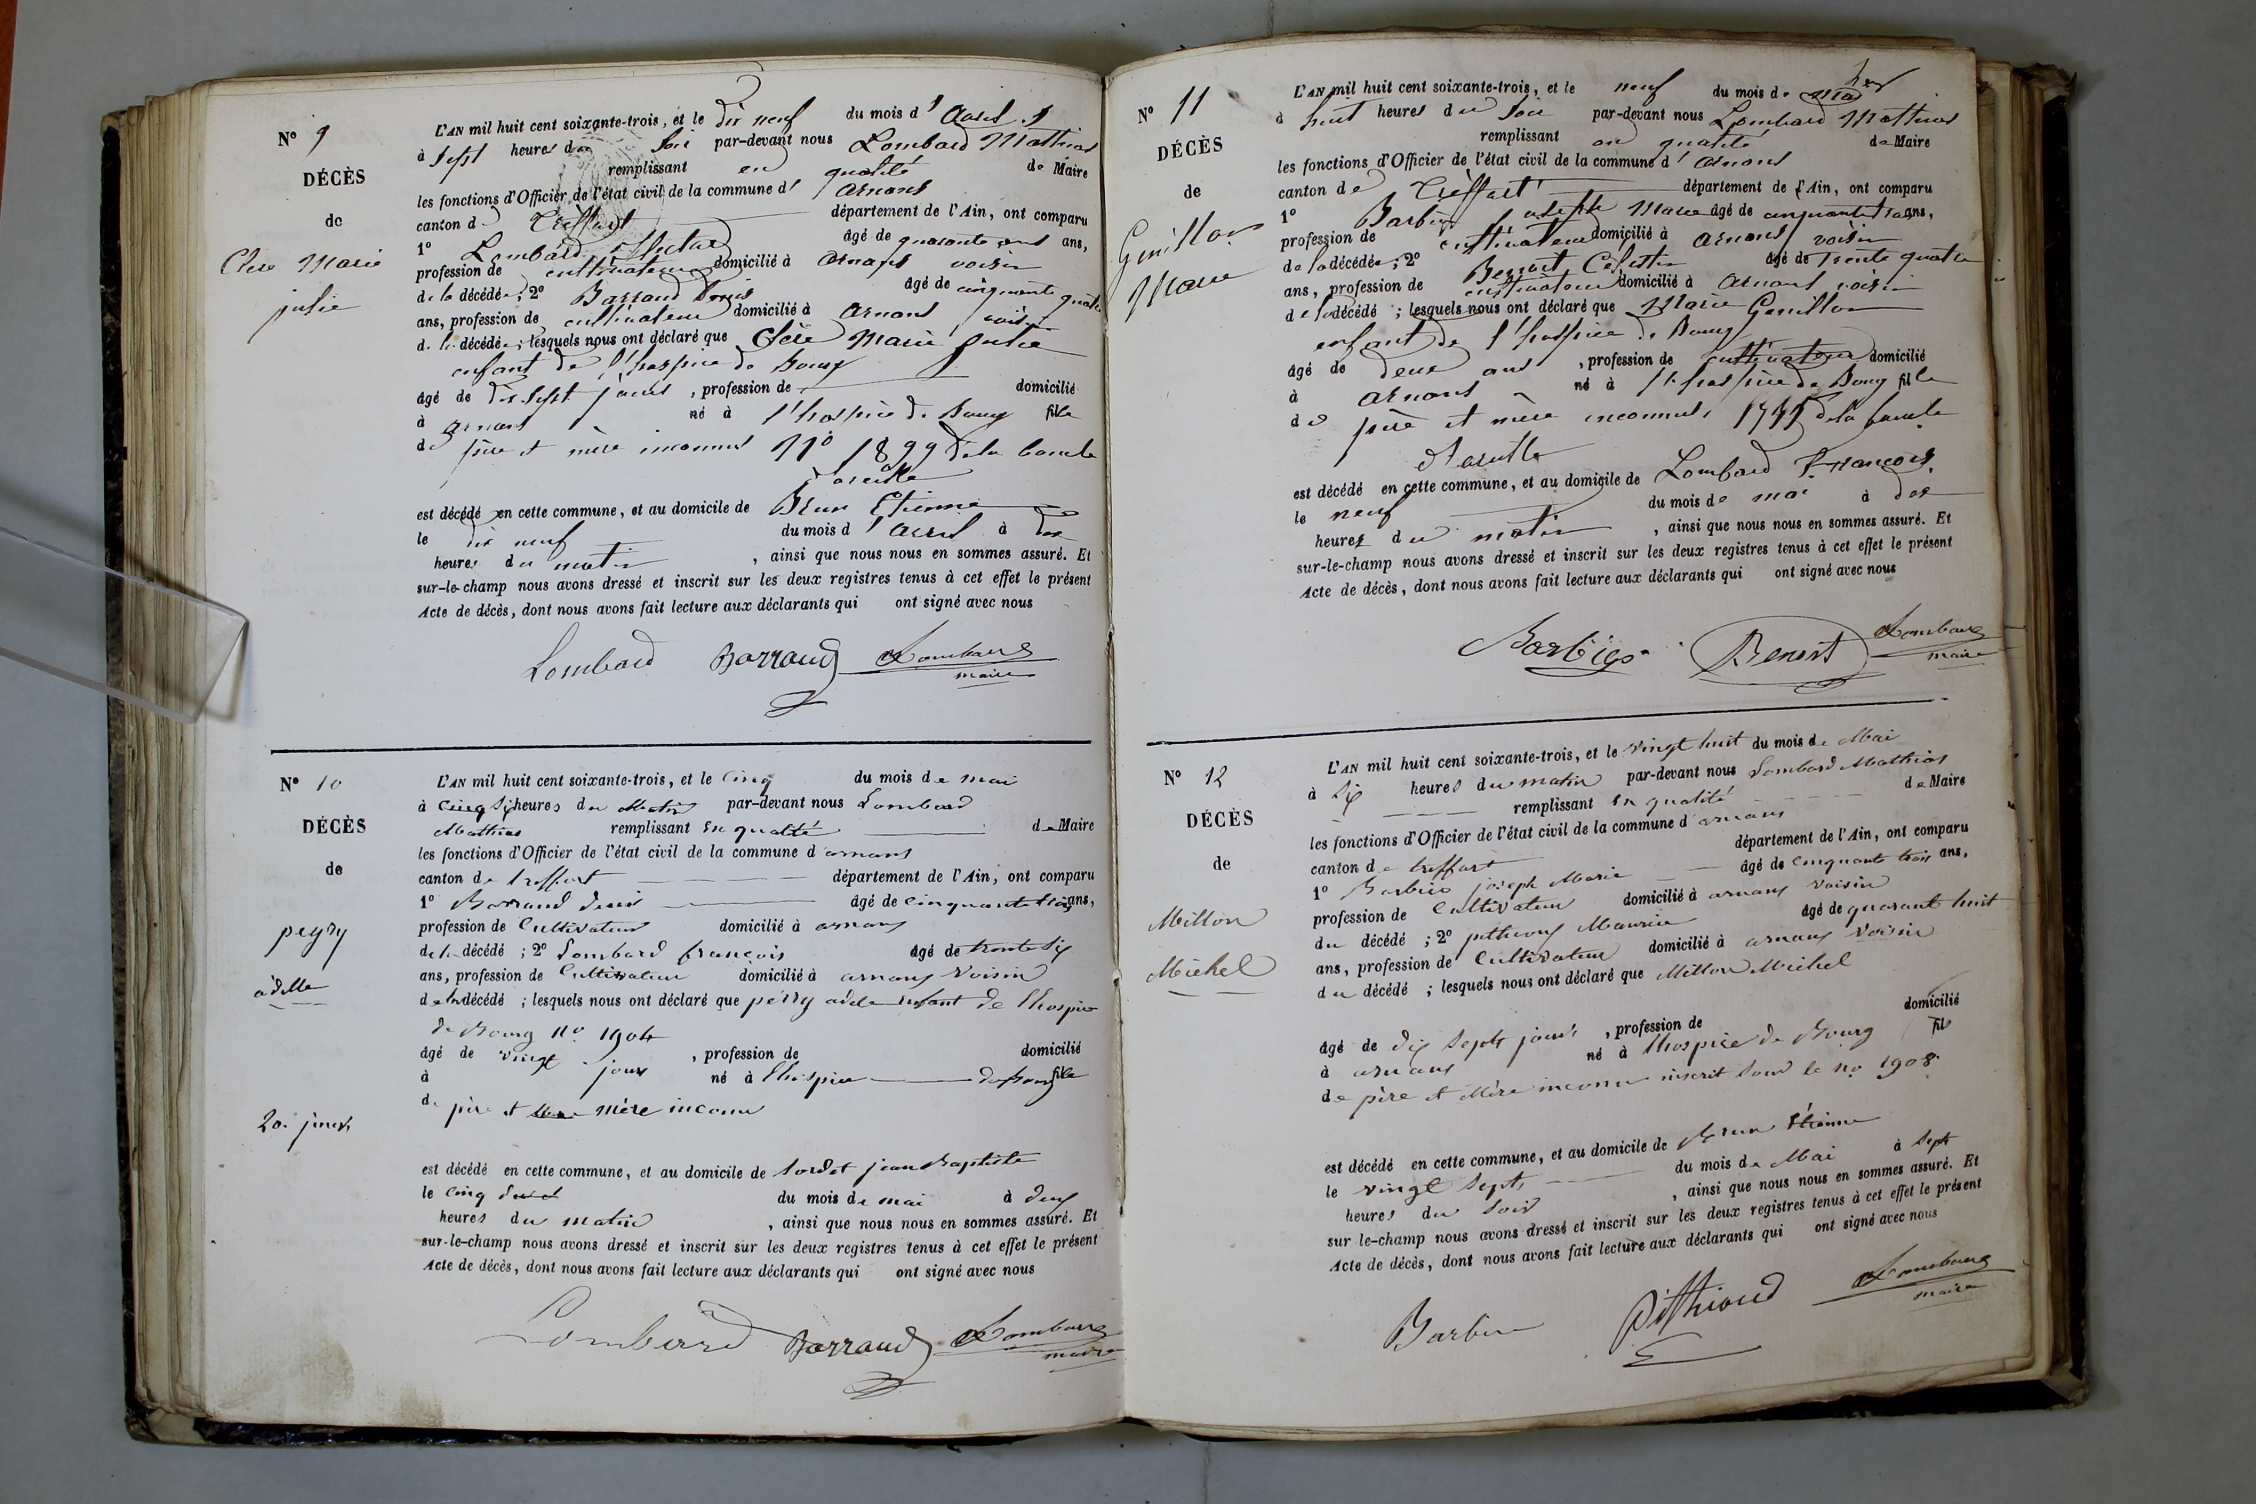 N° 9
DÉCÈS
de
Clere Marie
julie
L'AN mil huit cent soixante-trois, et le dix neuf du mois d'avril
à sept heures du soir par-devant nous Lombard Mathias
remplissant en qualité de Maire
les fonctions d'Officier de l'état civil de la commune d'arnans
canton de Treffort département de l'Ain, ont comparu
1° Lombard âgé de quarante ans,
profession de cultivateur domicilié à arnans voisin
de la décédée; 2° Barraud Denis âgé de cinquante quatre
ans, profession de cultivateur domicilié à arnans voisin
de la décédée; lesquels nous ont déclaré que Clere Marie julie
enfant de l'hospice de Bourg
âgé de dix sept jours, profession de domicilié
à arnans né à l'hospice de Bourg fille
de père et mère inconnus n° 1899 de la boucle
d'oreille
est décédé en cette commune, et au domicile de Brun Etienne
le dix neuf du mois d'avril à dix
heures du matin, ainsi que nous nous en sommes assuré. Et
sur-le-champ nous avons dressé et inscrit sur les deux registres tenus à cet effet le présent
Acte de décès, dont nous avons fait lecture aux déclarants qui ont signé avec nous
Lombard Barraud Lombard
maire
N° 10
DÉCÈS
de
peyry
adelle
20 jours
L'AN mil huit cent soixante-trois, et le cinq du mois de mai
à cinq heures du Matin par-devant nous Lombard
Mathias remplissant en qualité de Maire
les fonctions d'Officier de l'état civil de la commune d'arnans
canton de treffort département de l'Ain, ont comparu
1° Barraud denis âgé de cinquante trois ans,
profession de Cultivateur domicilié à arnans
de la décédé; 2° Lombard françois âgé de trente six
ans, profession de Cultivateur domicilié à arnans voisin
de la décédé; lesquels nous ont déclaré que peyry adele enfant de lhospice
de Bourg n° 1904
âgé de vingt jours, profession de domicilié
à né à lhospice de bourg fille
de père et mère inconu
est décédé en cette commune, et au domicile de Sordet jean Baptiste
le cinq du mois de mai à deux
heures du matin, ainsi que nous nous en sommes assuré. Et
sur-le-champ nous avons dressé et inscrit sur les deux registres tenus à cet effet le présent
Acte de décès, dont nous avons fait lecture aux déclarants qui ont signé avec nous
Lombard Barraud Lombard
maire
N° 11
DÉCÈS
de
Genillon
Marie
L'AN mil huit cent soixante-trois, et le neuf du mois de mai
à huit heures du soir par-devant nous Lombard Mathias
remplissant en qualité de Maire
les fonctions d'Officier de l'état civil de la commune d'arnans
canton de Treffort département de l'Ain, ont comparu
1° Barbier joseph Marie âgé de cinquante trois ans,
profession de cultivateur domicilié à arnans voisin
de la décédée; 2° Benoit Célestin âgé de trente quatre
ans, profession de cultivateur domicilié à arnans voisin
de la décédé; lesquels nous ont déclaré que Marie Genillon
enfant de l'hospice de Bourg
âgé de deux ans, profession de cultivateur domicilié
à arnans né à l'hospice de Bourg fille
de père et mère inconnus de la boucle
d'oreille
est décédé en cette commune, et au domicile de Lombard François
le neuf du mois de mai à dix
heures du matin, ainsi que nous nous en sommes assuré. Et
sur-le-champ nous avons dressé et inscrit sur les deux registres tenus à cet effet le présent
Acte de décès, dont nous avons fait lecture aux déclarants qui ont signé avec nous
Barbier Benoit Lombard
maire
N° 12
DÉCÈS
de
Millon
Michel
L'AN mil huit cent soixante-trois, et le vingt huit du mois de Mai
à six heures du matin par-devant nous Lombard Mathias
remplissant en qualité de Maire
les fonctions d'Officier de l'état civil de la commune d'arnans
canton de treffort département de l'Ain, ont comparu
1° Barbier joseph Marie âgé de cinquante trois ans,
profession de Cultivateur domicilié à arnans voisin
du décédé; 2° pithioud Maurice âgé de quarante huit
ans, profession de Cultivateur domicilié à arnans voisin
du décédé; lesquels nous ont déclaré que Millon Michel
domicilié
âgé de dix Sept jours, profession de
à arnans né à lhospice de Bourg fils
de père et Mère inconnu inscrit sous le no 1908
est décédé en cette commune, et au domicile de Brun Etienne
le vingt Sept du mois de Mai à Sept
heures du Soir, ainsi que nous nous en sommes assuré. Et
sur-le-champ nous avons dressé et inscrit sur les deux registres tenus à cet effet le présent
Acte de décès, dont nous avons fait lecture aux déclarants qui ont signé avec nous
Barbier Pithioud Lombard
maire